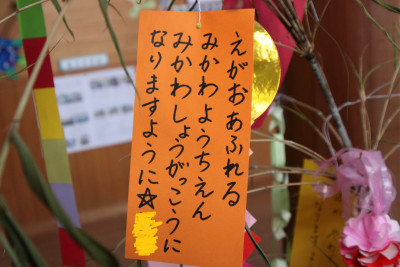 えがおあふれる
みかわようちえん
みかわしょうがっこうに
なりますように☆